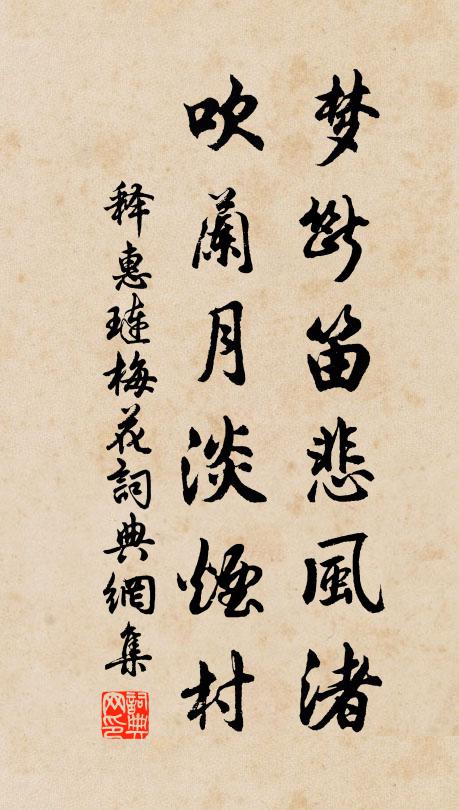 梦断笛悲風渚
吹蘭月淡煙村
释惠璉梅花詞典網集
詞典网印